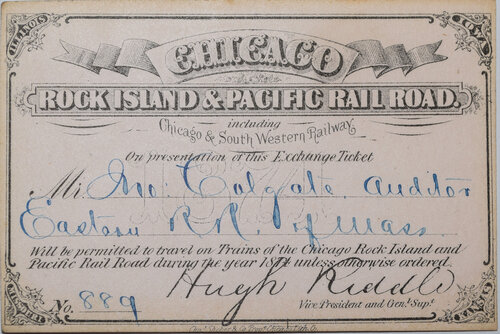 ILLINOIS
IOWA
CHICAGO
ROCK ISLAND & PACIFIC RAIL ROAD.
including
Chicago & South Western Railway
On presentation of this Exchange Ticket
Mr. Jno. Colgate Auditor
Eastern R.R. of Mass
Will be permitted to travel on Trains of the Chicago Rock Island and
Pacific Rail Road during the year 1874 unless otherwise ordered.
Hugh Riddle
No. 889
Vice President and Genl. Supt.
KANSAS